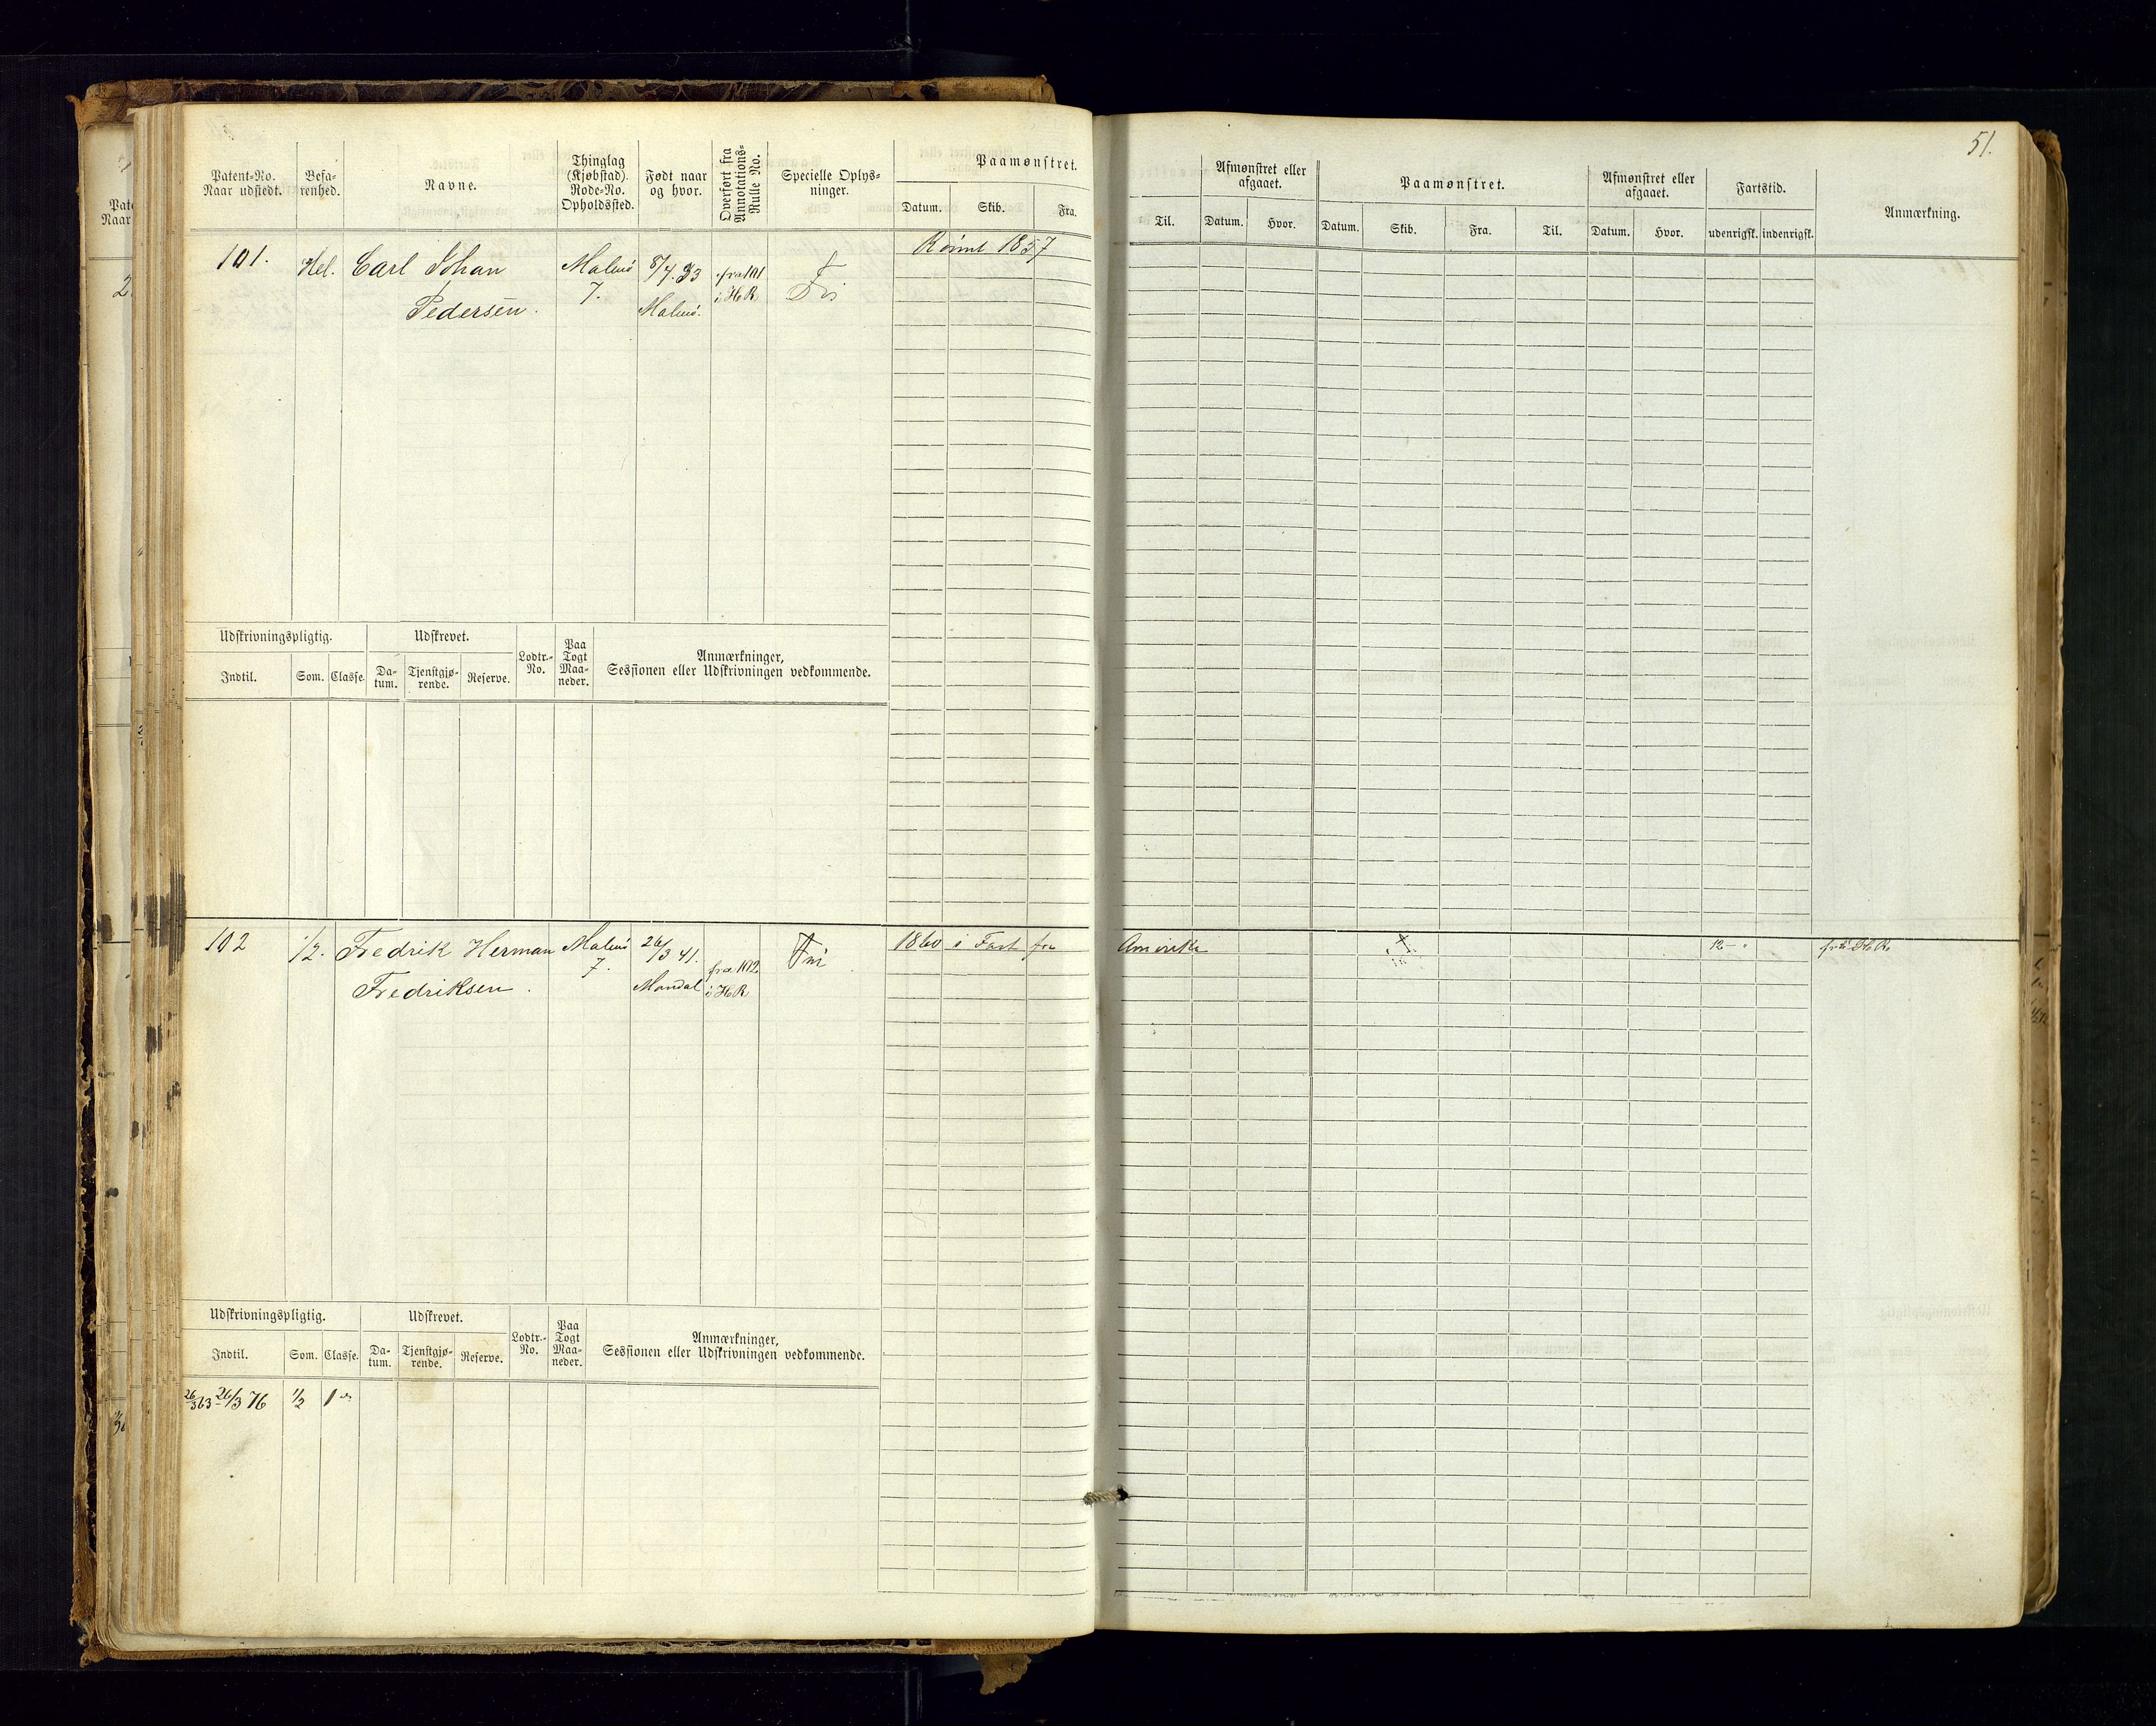 51.
Patent-No. Naar udstedt.
Befarenhed.
Navne.
Thinglag (Kjøbstad). Rode-No. Opholdssted.
Født naar og hvor.
Overført fra Annotations-Rulle No.
Specielle Oplysninger.
Paamønstret.
Datum. Skib. Fra. Til.
Afmønstret eller afgaaet.
Datum. Hvor.
Paamønstret.
Datum. Skib. Fra. Til.
Afmønstret eller afgaaet.
Datum. Hvor.
Fartstid.
udenrigsk. indenrigsk.
Anmærkning.
101. Hel. Carl Johan Malmø 8/4 33 fra 101 Rømt 1857
Pedersen. 7. Malmø. i H R
Udskrivningspligtig. Udskrevet. Lodtr.-No. Paa Togt Maaneder. Anmærkninger, Sessionen eller Udskrivningen vedkommende.
Indtil. Som. Classe. Datum. Tjenstgjørende. Reserve.
102 1/2. Fredrik Herman Malmø 26/3 41. fra 102 Fri 1860 i Fart fra Amerika X 12 - " fra H R
Fredriksen. 7. Mandal i H R
Udskrivningspligtig. Udskrevet. Lodtr.-No. Paa Togt Maaneder. Anmærkninger, Sessionen eller Udskrivningen vedkommende.
Indtil. Som. Classe. Datum. Tjenstgjørende. Reserve.
26/3 63 26/3 76 1/2 1